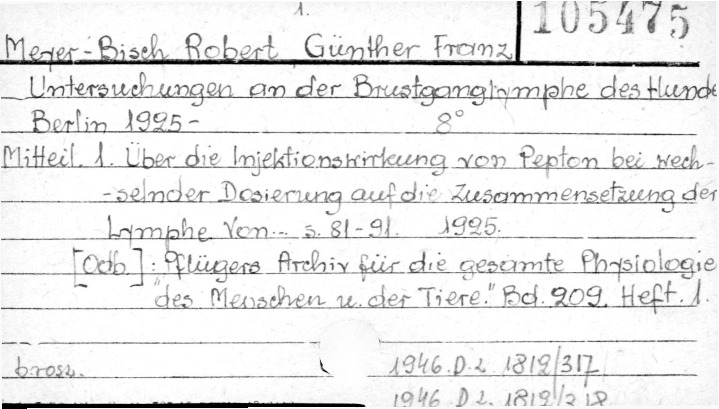 1.
105475
Meyer-Bisch Robert Günther Franz
Untersuchungen an der Brustganglymphe des Hunde
Berlin 1925- 8°
Mitteil. 1. Über die Injektionswirkung von Pepton bei wech-
-selnder Dosierung auf die Zusammensetzung der
Lymphe Von... s. 81-91. 1925.
[Odb.]: Pflügers Archiv für die gesamte Physiologie
"des Menschen u. der Tiere." Bd. 209. Heft. 1.
brosz. 1946.D.2. 1812/317
1946 D 2. 1812/318